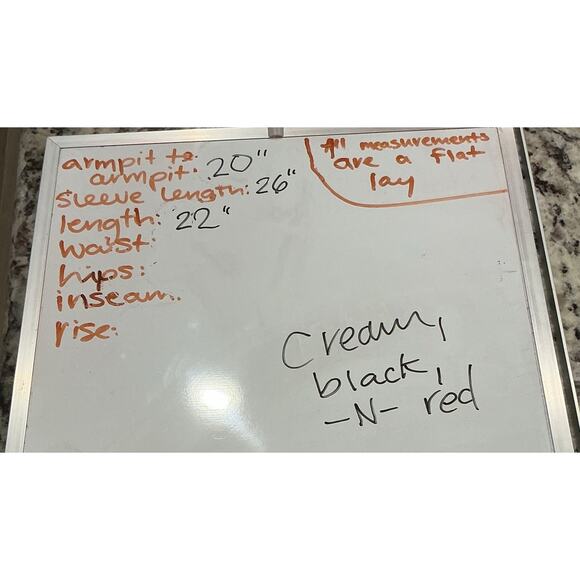 armpit to
armpit: 20"
sleeve length: 26"
length: 22"
waist:
hips:
inseam:
rise:
All measurements
are a flat
lay
Cream,
black,
-N- red